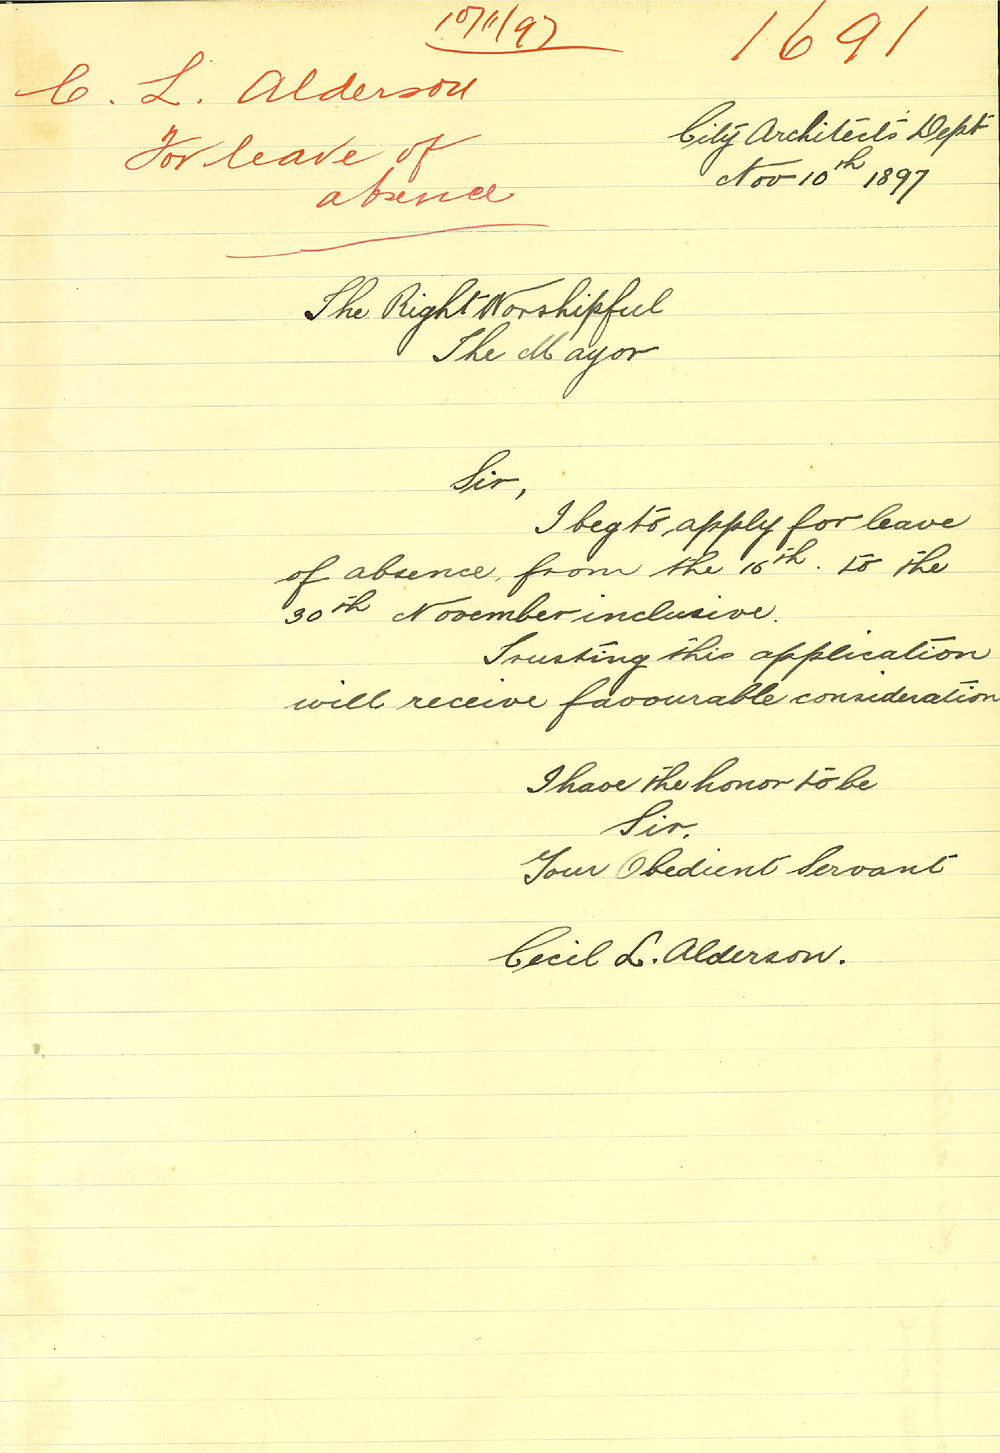 10/11/97
1691
C. L. Alderson
For leave of
absence
City Architects Dept
Nov 10th 1897
The Right Worshipful
The Mayor
Sir,
I beg to apply for leave
of absence, from the 16th. to the
30th November inclusive.
Trusting this application
will receive favourable consideration
I have the honor to be
Sir,
Your Obedient Servant
Cecil L. Alderson.